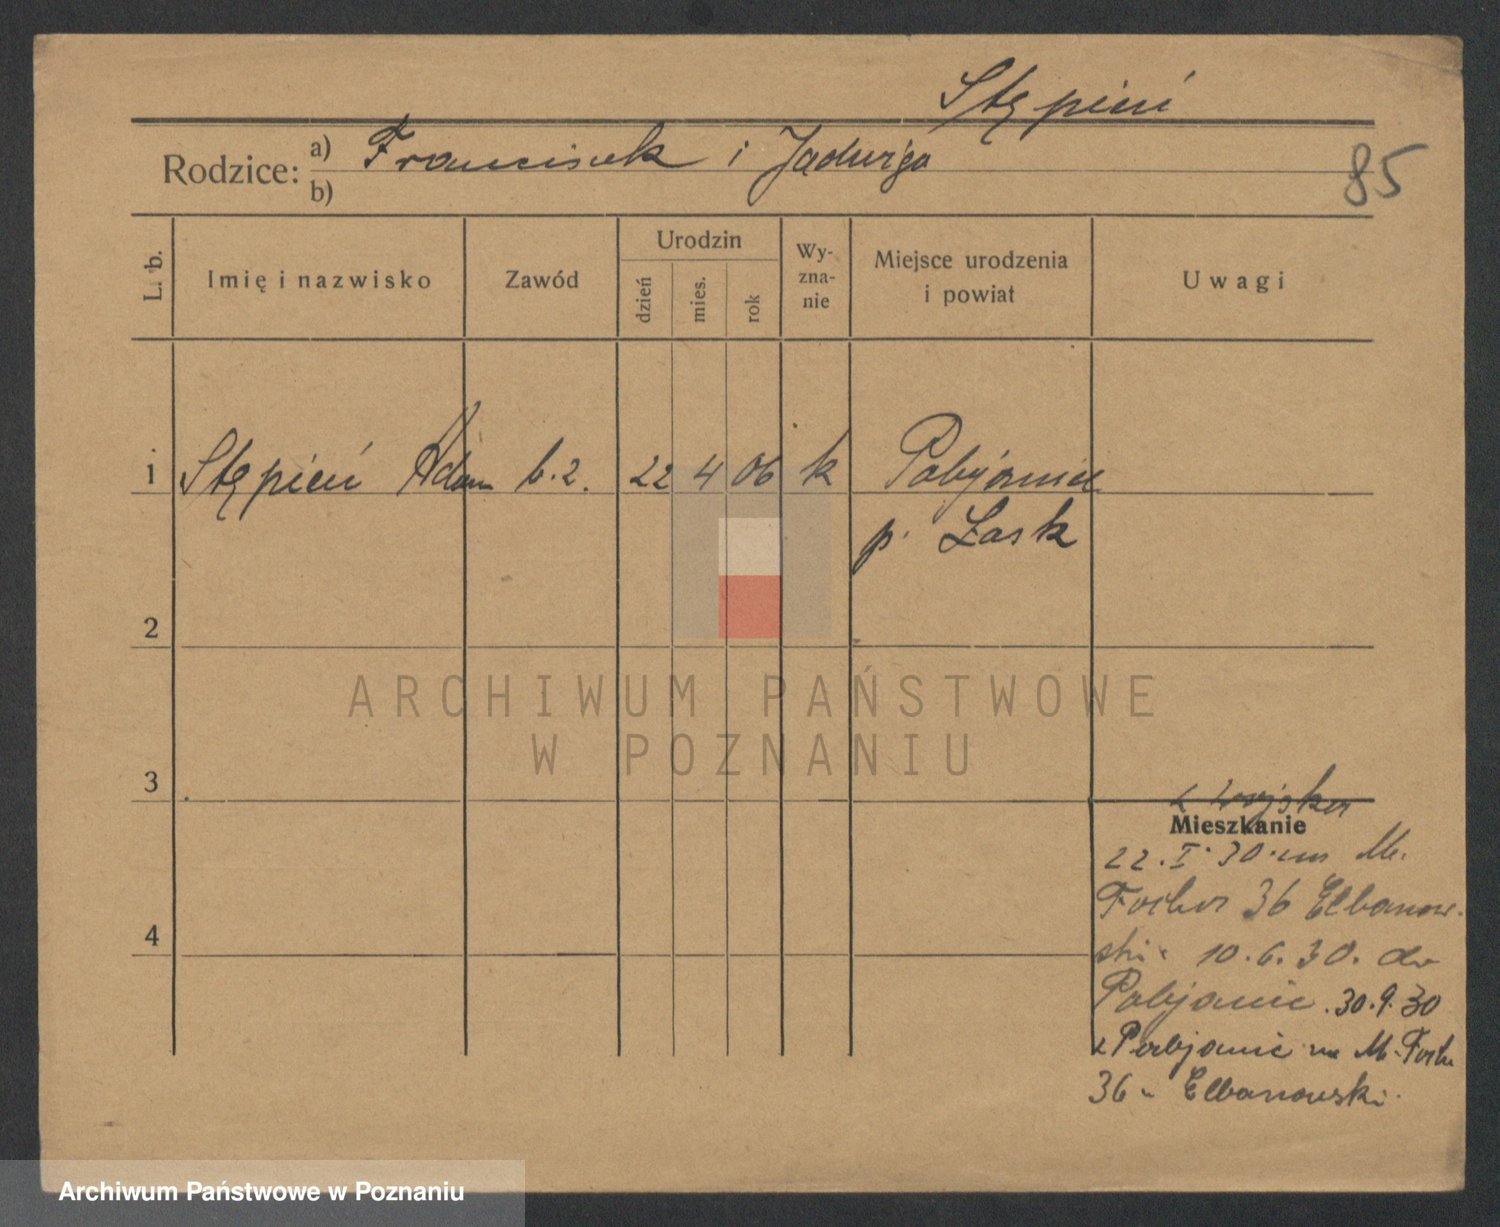 Stępień
Rodzice: a) Franciszek i Jadwiga
b)
85
L. b.
Imię i nazwisko
Zawód
Urodzin
dzień
mies.
rok
Wy-
zna-
nie
Miejsce urodzenia
i powiat
Uwagi
1 Stępień Adam b. 2. 22 4 06 k Pabjanice
p. Łask
2
ARCHIWUM PAŃSTWOWE
W POZNANIU
3
z wojska
Mieszkanie
22. I. 30. na M.
Focha 36 Elbanow-
ski. 10.6.30. do
Pabjanic. 30.9.30
z Pabjanic na M. Focha
36 - Elbanowski.
4
Archiwum Państwowe w Poznaniu